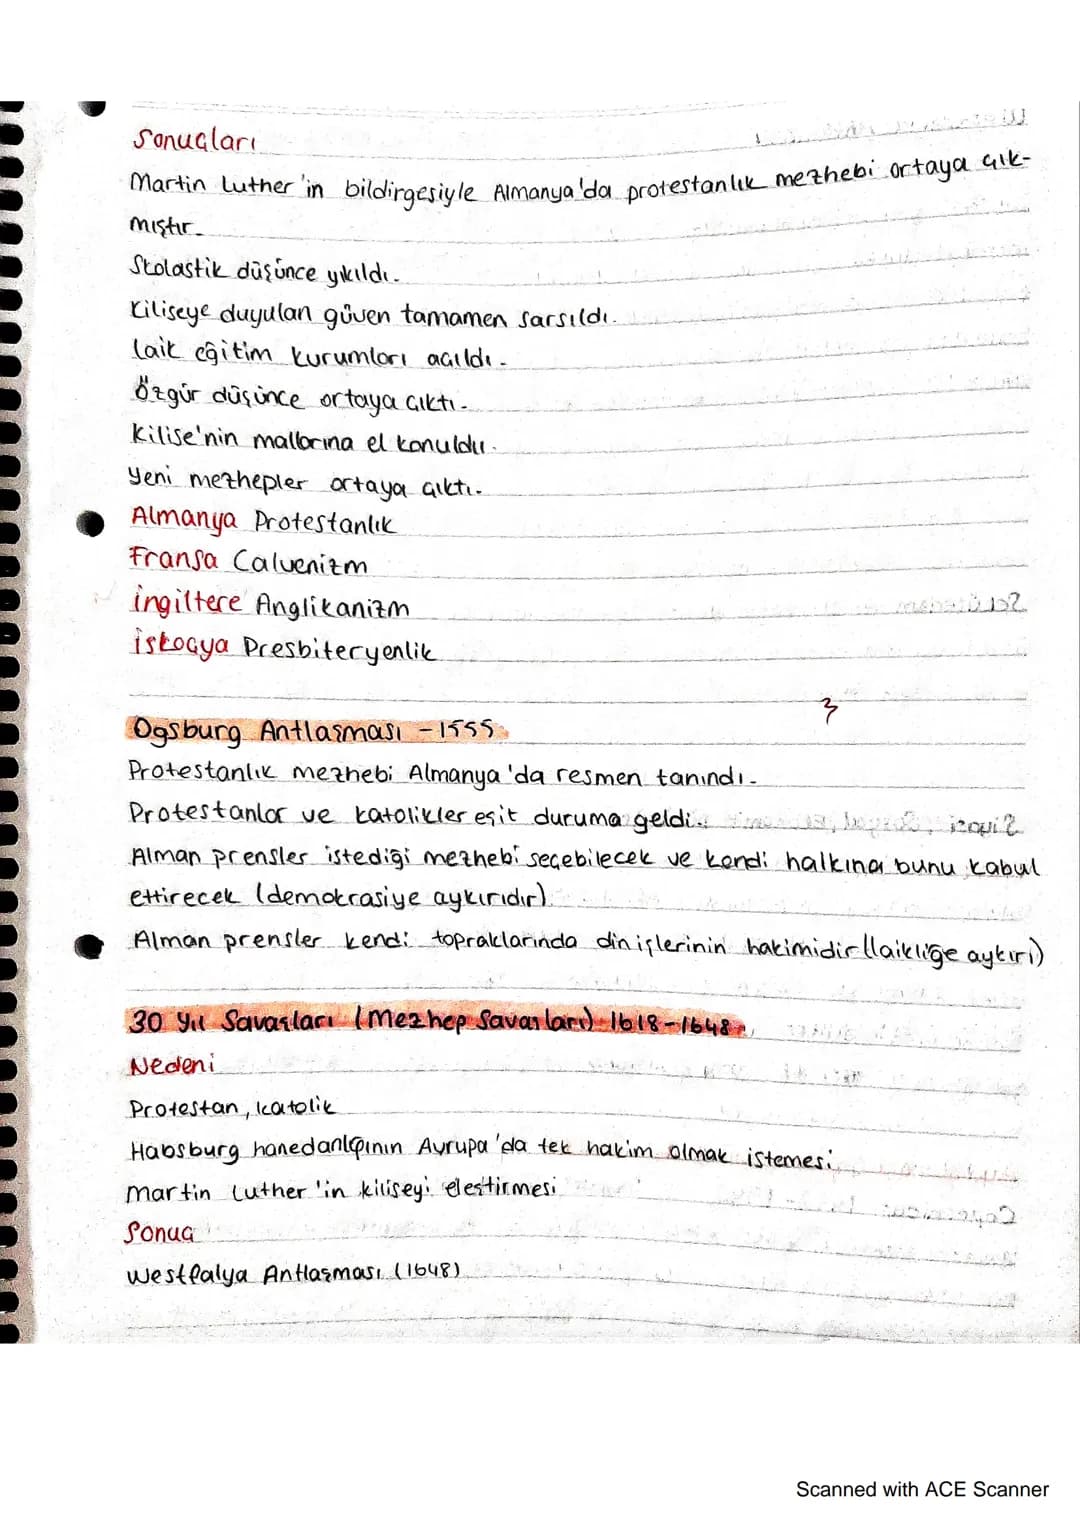 Sonuçları
Martin Luther'in bildirgesiyle Almanya'da protestanlık mezhebi ortaya çık-
mıştır.
Skolastik düşünce yıkıldı.
Kiliseye duyulan güven tamamen sarsıldı.
Laik eğitim kurumları açıldı.
Özgür düşünce ortaya çıktı.
Kilise'nin mallarına el konuldu.
Yeni mezhepler ortaya çıktı.
Almanya Protestanlık
Fransa Calvenizm
İngiltere Anglikanizm
İskoçya Presbiteryenlik
3
Ogsburg Antlaşması - 1555
Protestanlık mezhebi Almanya'da resmen tanındı.
Protestanlar ve katolikler eşit duruma geldi.
Alman prensler istediği mezhebi seçebilecek ve kendi halkına bunu kabul
ettirecek (demokrasiye aykırıdır)
Alman prensler kendi topraklarında din işlerinin hakimidir (laikliğe aykırı)
30 Yıl Savaşları (Mezhep Savaşları) 1618-1648
Nedeni
Protestan, katolik
Habsburg hanedanlığının Avrupa'da tek hakim olmak istemesi
Martin Luther'in kiliseyi eleştirmesi
Sonuç
Westfalya Antlaşması (1648)
Scanned with ACE Scanner